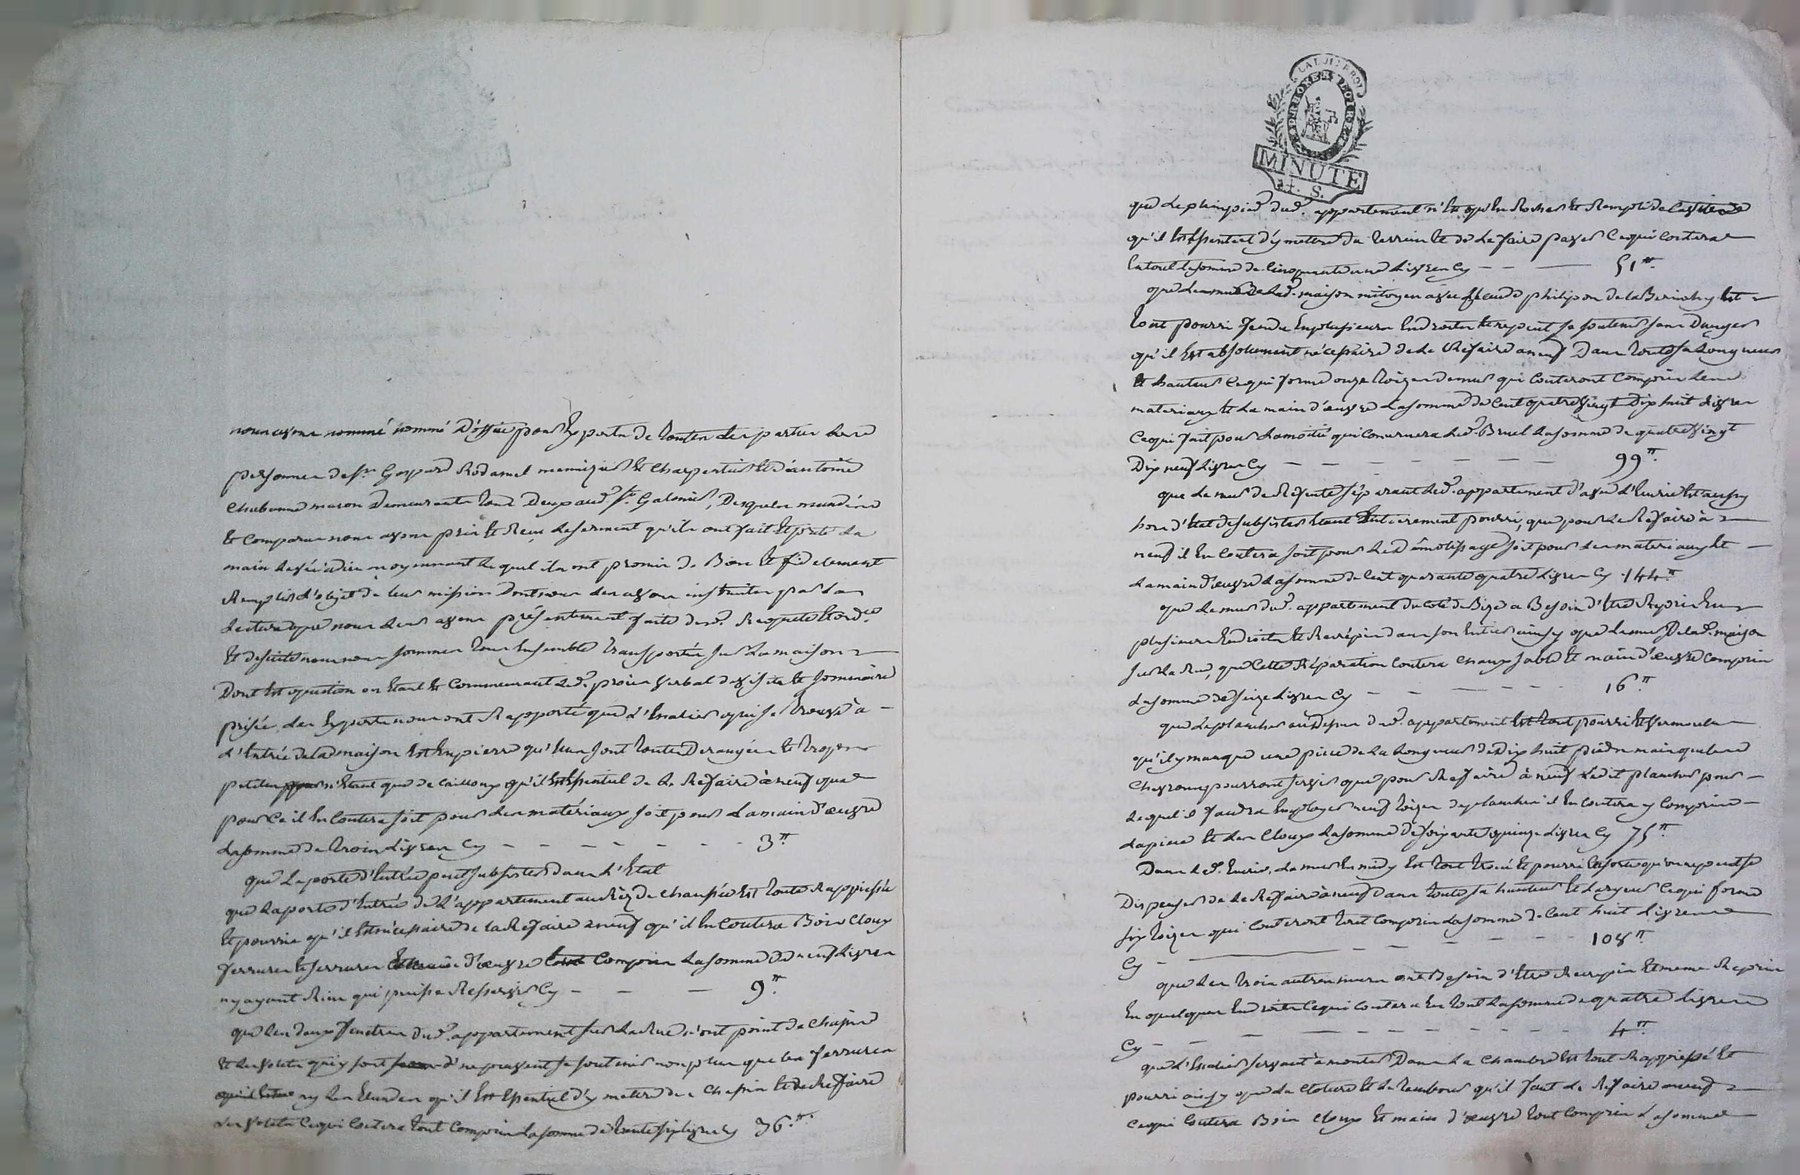 nous avons nommé nommé D'office pour Experts de toutes les parties les
personnes de sr. Gaspard Rodamel menuizier et charpentier et d'antoine
Chabanne mason Demeurants tous Deux aud. st. Galmier, Desquels mandés
Et comparus nous avons pris et Reçu le serment qu'ils ont fait et preté la
main levée à dieu moyennant lequel ils ont promis de Bien et fidelement
Remplir l'objet de leur mission dont nous les avons instruits par la
Lecture que nous leurs avons présentement faite desd. Requete et ord.ce
Et de suite nous nous sommes tous Ensemble transportés sur la maison
Dont Est question ou Etant et Commencant Led. procès verbal de visite et sommaire
prisée, les Experts nous ont Rapporté que l'Escalier qui se trouve à
L'Entrée de lad. maison Est En pierre qu'Elles sont toutes Derangées et trop
petites n'Etant que de cailloux qu'il Est Essentiel de le Refaire à neuf que
pour Ce il En Coutera soit pour les matériaux soit pour la main d'œuvre
La somme de trois Livres Cy 3.tt
que La porte d'Entrée peut subsister Dans L'Etat
que La porte d'Entrée de L'appartement au Rez de chaussée Est toute Rappiessée
Et pourrie qu'il Est nécessaire de la Refaire à neuf qu'il En Coutera Bois Cloux
ferrures et serrures Et main d'œuvre Compris La somme De neuf Livres
n'y ayant Rien qui puisse Resservir Cy 9.tt
que les deux fenetres dud. appartement sur La Rue n'ont point de Chassis
Et les volets qui y sont ne peuvent se soutenir non plus que les ferrures
ny les Etendes qu'il Est Essentiel d'y metre des Chassis et de Refaire
les volets Ce qui Coutera tout Compris La somme de trente six livres Cy 36.tt
LA LOI LE ROI
RHONE ET LOIRE
MINUTE
4. S.
que Le plain pied dud. appartement n'Est qu'En Rocher et Rempli de
qu'il Est Essentiel d'y metre du terrein Et de Le faire paver Ce qui Coutera
En tout La somme de Cinquante une Livres Cy 51.tt
que Le mur De Lad. maison mitoyen avec Philipon de la Berichy Est
tout pourri fendu En plusieurs Endroits ne peut se soutenir sans Danger
qu'il Est absolument nécessaire de Le Refaire à neuf Dans toute sa Longueur
Et hauteur Ce qui forme onze toizes de mur qui Couteront Compris Les
materiaux Et La main d'œuvre La somme de Cent quatre vingt Dix huit Livres
Ce qui fait pour La moitié qui Concernera Led. Bruel La somme de quatre vingt
Dix neuf Livres Cy 99.tt
que Le mur de Refente séparant Led. appartement d'avec L'Ecurie Est aussy
hors d'Etat de subsister Etant Entierement pourri, que pour Le Refaire à
neuf il En Coutera soit pour Le démolissage soit pour Les materiaux Et
La main d'œuvre La somme de Cent quarante quatre Livres Cy 144.tt
que Le mur dud. appartement du coté de Bize a Besoin d'Etre Repris En
plusieurs Endroits Et Recrépir dans son Entier ainsy que Le mur De Lad. maison
sur La Rue, que Cette Réparation Coutera Chaux sable Et main d'œuvre Compris
La somme de seize Livres Cy 16.tt
que Le plancher au Dessus dud. appartement Est tout pourri Et vermoulu
qu'il y manque une piece de La Longueur de Dix huit pieds mais que Les
Chevrons pourront servir que pour Refaire à neuf Ledit plancher pour
Lequel il faudra Employer neuf toizes de planches il En Coutera y Compris
La piece Et Les Cloux La somme De soixante quinze Livres Cy 75.tt
Dans Lad. Ecurie, Le mur En midy Est tout Et pourri En sorte qu'on ne peut se
Dispenser de Le Refaire à neuf Dans toute sa hauteur Et Largeur Ce qui forme
six toizes qui Couteront tout Compris La somme De Cent huit Livres
Cy 108.tt
que Les trois autres murs ont Besoin d'Etre Recrepis Et meme Repris
En quelques Endroits Ce qui Coutera En tout La somme de quatre Livres
Cy 4.tt
que L'Escalier servant à monter Dans La Chambre Est tout Rappiessé Et
pourri ainsy que La Cloture Et Le tambour qu'il faut Le Refaire à neuf
Ce qui Coutera Bois Cloux Et main d'œuvre tout Compris La somme